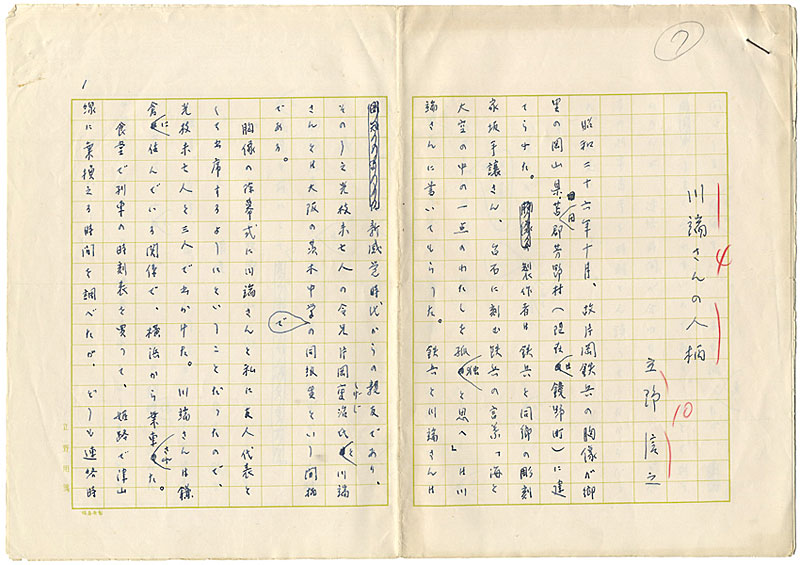 7
川端さんの人柄
4
立野信之
10
昭和三十六年十月、故片岡鉄兵の胸像が郷
里の岡山県苫田郡芳野村（現在は鏡野町）に建
てられた。製作者は鉄兵と同郷の彫刻
家坂手譲さん、台石に刻む鉄兵の言葉「海と
大空の中の一点のわたしを孤独と思へ」は川
端さんに書いてもらった。鉄兵と川端さんは
新感覚時代からの親友であり、
そのうえ光枝未亡人の令兄片岡重治氏と川端
さんとは大阪の茨木中学での同級生という間柄
である。
胸像の除幕式に川端さんと私に友人代表と
して出席するようにということだったので、
光枝未亡人と三人で出かけた。川端さんは鎌
倉に住んでいる関係で、横浜から乗車された。
食堂で列車の時刻表を買って、姫路で津山
線に乗換える時間を調べたが、どうも連絡時
1
立野用箋